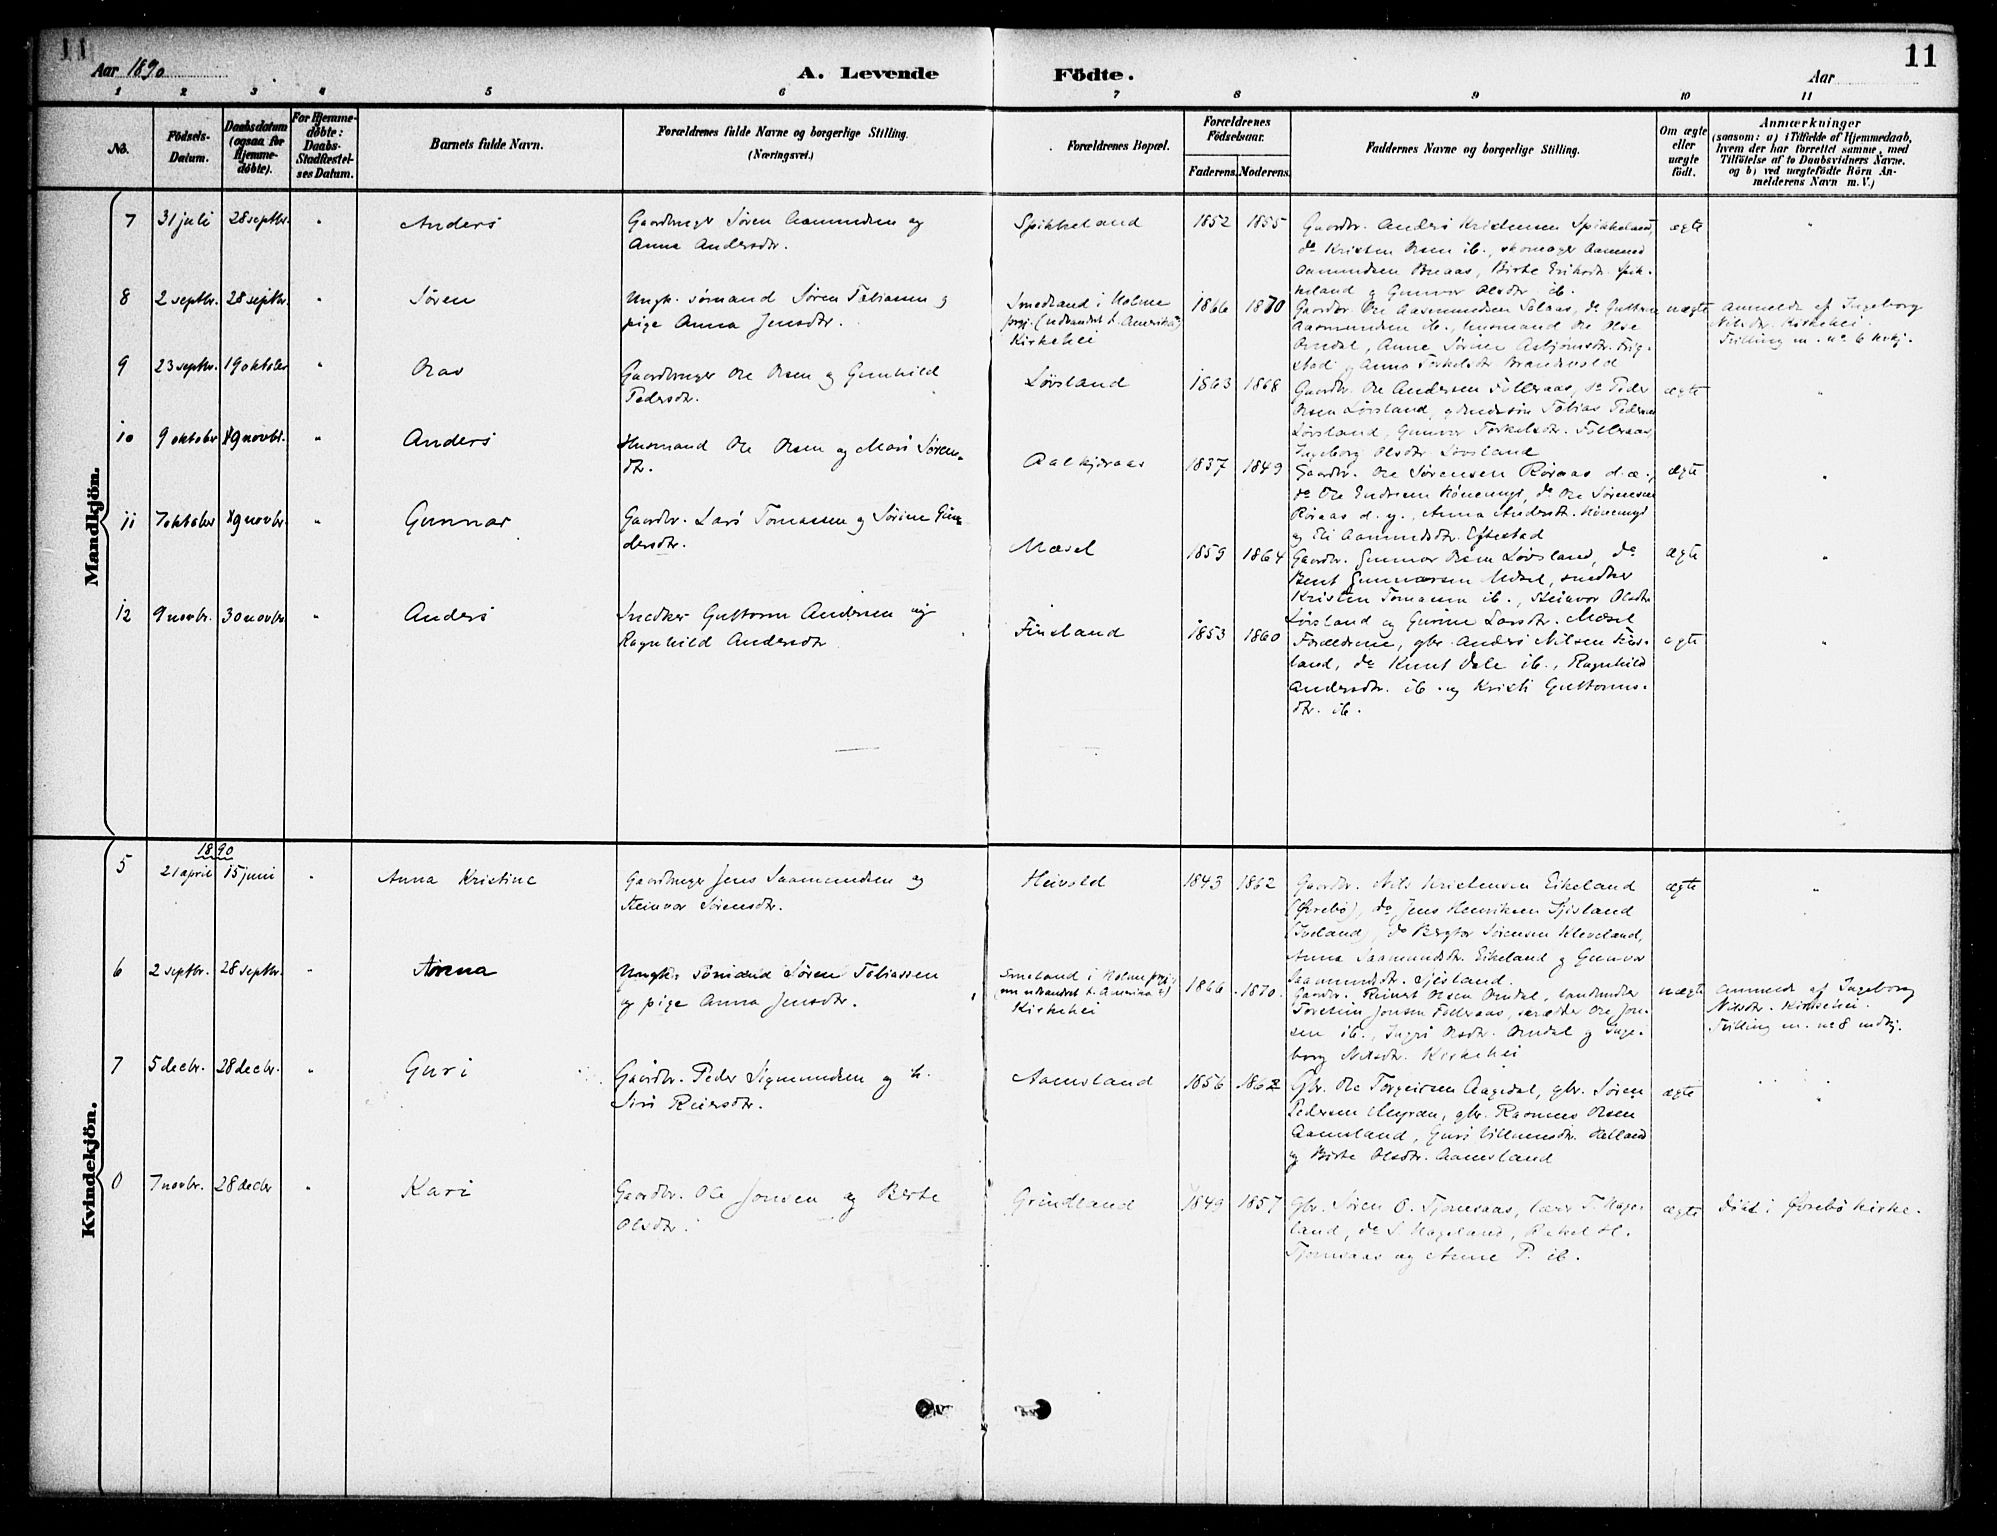 11
11
Aar 1890
A. Levende
Födte.
Aar
1 2 3 4 5 6 7 8 9 10 11
No.
Födsels-
Datum.
Daabsdatum
(ogsaa for
Hjemme-
døbte).
For Hjemme-
døbte:
Daabs-
Stadfæstel-
ses Datum.
Barnets fulde Navn.
Forældrenes fulde Navne og borgerlige Stilling.
(Næringsvei.)
Forældrenes Bopæl.
Forældrenes
Födselsaar.
Faderens. Moderens.
Faddernes Navne og borgerlige Stilling.
Om ægte
eller
uægte
født.
Anmærkninger
(saasom: a) i Tilfælde af Hjemmedaab,
hvem der har forrettet samme, med
Tilföielse af to Daabsvidners Navne.
og b) ved uægtefödte Börn An-
melderens Navn m. V.)
Mandkjön.
7 31 juli 28 septbr. " Anders
Gaardbruger Søren Aamundsen og
Anna Andersdtr.
Spikkeland 1852 1855
Gaardbr. Anders Kristensen Spikkeland,
do Kristen Olsen ib., skomager Aamund
Aamundsen Breaas, Birte Eriksdr. Spik-
keland og Gunvor Olsdtr. ib.
ægte "
8 2 septbr. 28 septbr. " Søren
Ungk. sømand Søren Tobiassen og
pige Anna Jensdtr.
Smedland i Holme
prgj. (udvandret t. Amerika)
Kirkehei
1866 1870
Gaardbr. Ole Aasmundsen Solaas, do Guttorm
Aasmundsen ib., husmand Ole Olse
Omdal, Anne Sørine Asbjørnsdtr. Frig-
stad og Anna Torkelsdtr Brandsvold
uægte
Anmeldt af Ingeborg
Nilsdtr. Kirkehei.
Tvilling m. no 6 kvkj.
9 23 septbr. 19 oktober " Olav
Gaardbruger Ole Olsen og Gunhild
Pedersdtr.
Løvsland 1863 1868
Gaardbr. Ole Andersen Folleraas, do Peder
Olsen Løvsland, gaardmdssøn Tobias Pedersen
Løvsland, Gunvor Torkelsdtr. Follraas,
Ingeborg Olsdtr Løvsland
ægte "
10 9 oktober 9 novbr. " Anders
Husmand Ole Olsen og Mari Søren-
dtr.
Aalkjæraas 1837 1849
Gaardbr. Ole Sørensen Røiaas d. æ.,
do Ole Endresen Hønemyr, do Ole Sørensen
Røiaas d. y., Anna Andersdtr. Hønemyr
og Eli Aamundsdtr. Eftestad
ægte "
11 7 oktober 9 novbr. " Gunnar
Gaardbr. Lars Tomassen og Sørine Gun-
dersdtr.
Mæsel 1859 1864
Gaardbr. Gunnar Olsen Løvsland, do
Bent Gunnarsen Mæsel, snedker
Kristen Tomassen ib., Steinvor Olsdtr.
Løvsland og Gurine Larsdtr. Mæsel
ægte "
12 9 novbr. 30 novbr. " Anders
Snedker Guttorm Andersen og
Ragnhild Andersdtr
Finsland 1853 1860
Forældrene, gbr. Anders Nilsen Fins-
land, do Knut Dale ib., Ragnhild
Andersdtr. ib. og Kristi Guttorms-
dtr. ib.
ægte "
Kvindekjön.
1890
5 21 april 15 juni " Anna Kristine
Gaardbruger Jens Saamundsen og
Steinvor Sørensdtr.
Heivold 1843 1862
Gaardbr. Nils Kristensen Eikeland
(Øvrebø), do Jens Henriksen Fjisland
(Iveland), do Bergtor Sørensen Kleveland,
Anna Saamundsdtr. Eikeland og Gunvor
Saamundsdtr. Fjisland.
ægte "
6 2 septbr. 28 septbr. " Anna
Ungk. sømand Søren Tobiassen
og pige Anna Jensdtr.
Smeland i Holme prgj.
(nu udvandret t. Amerika)
Kirkehei
1866 1870.
Gaardbr. Reinert Olsen Omdal, landhandler
Torstein Jonsen Follraas, skrædder Ole Jon-
sen ib., Ingri Olsdtr. Omdal og Inge-
borg Nilsdtr. Kirkehei
uægte
anmeldt af Ingeborg
Nilsdtr. Kirkehei.
Tvilling m. no 8 mdkj.
7 5 decbr. 28 decbr. " Guri
Gaardbr. Peder Sigmundsen og h.
Siri Reiersdtr.
Aamsland 1856 1862
Gbr. Ole Torgeirsen Aagedal, gbr. Søren
Pedersen Myran, gbr. Rasmus Olsen
Aamsland, Guri Villumsdtr. Helland
og Birte Olsdtr. Aamsland
ægte "
7 novbr. 28 decbr " Kari
Gaardbr. Ole Jonsen og Berte
Olsdtr.
Grindland 1849 1857
Gbr. Søren O. Tjomsaas, lærer T. Hage-
land, do S. Hageland, H.
Tjomsaas og Anne P. ib.
ægte
Døbt i Øvrebø kirke.